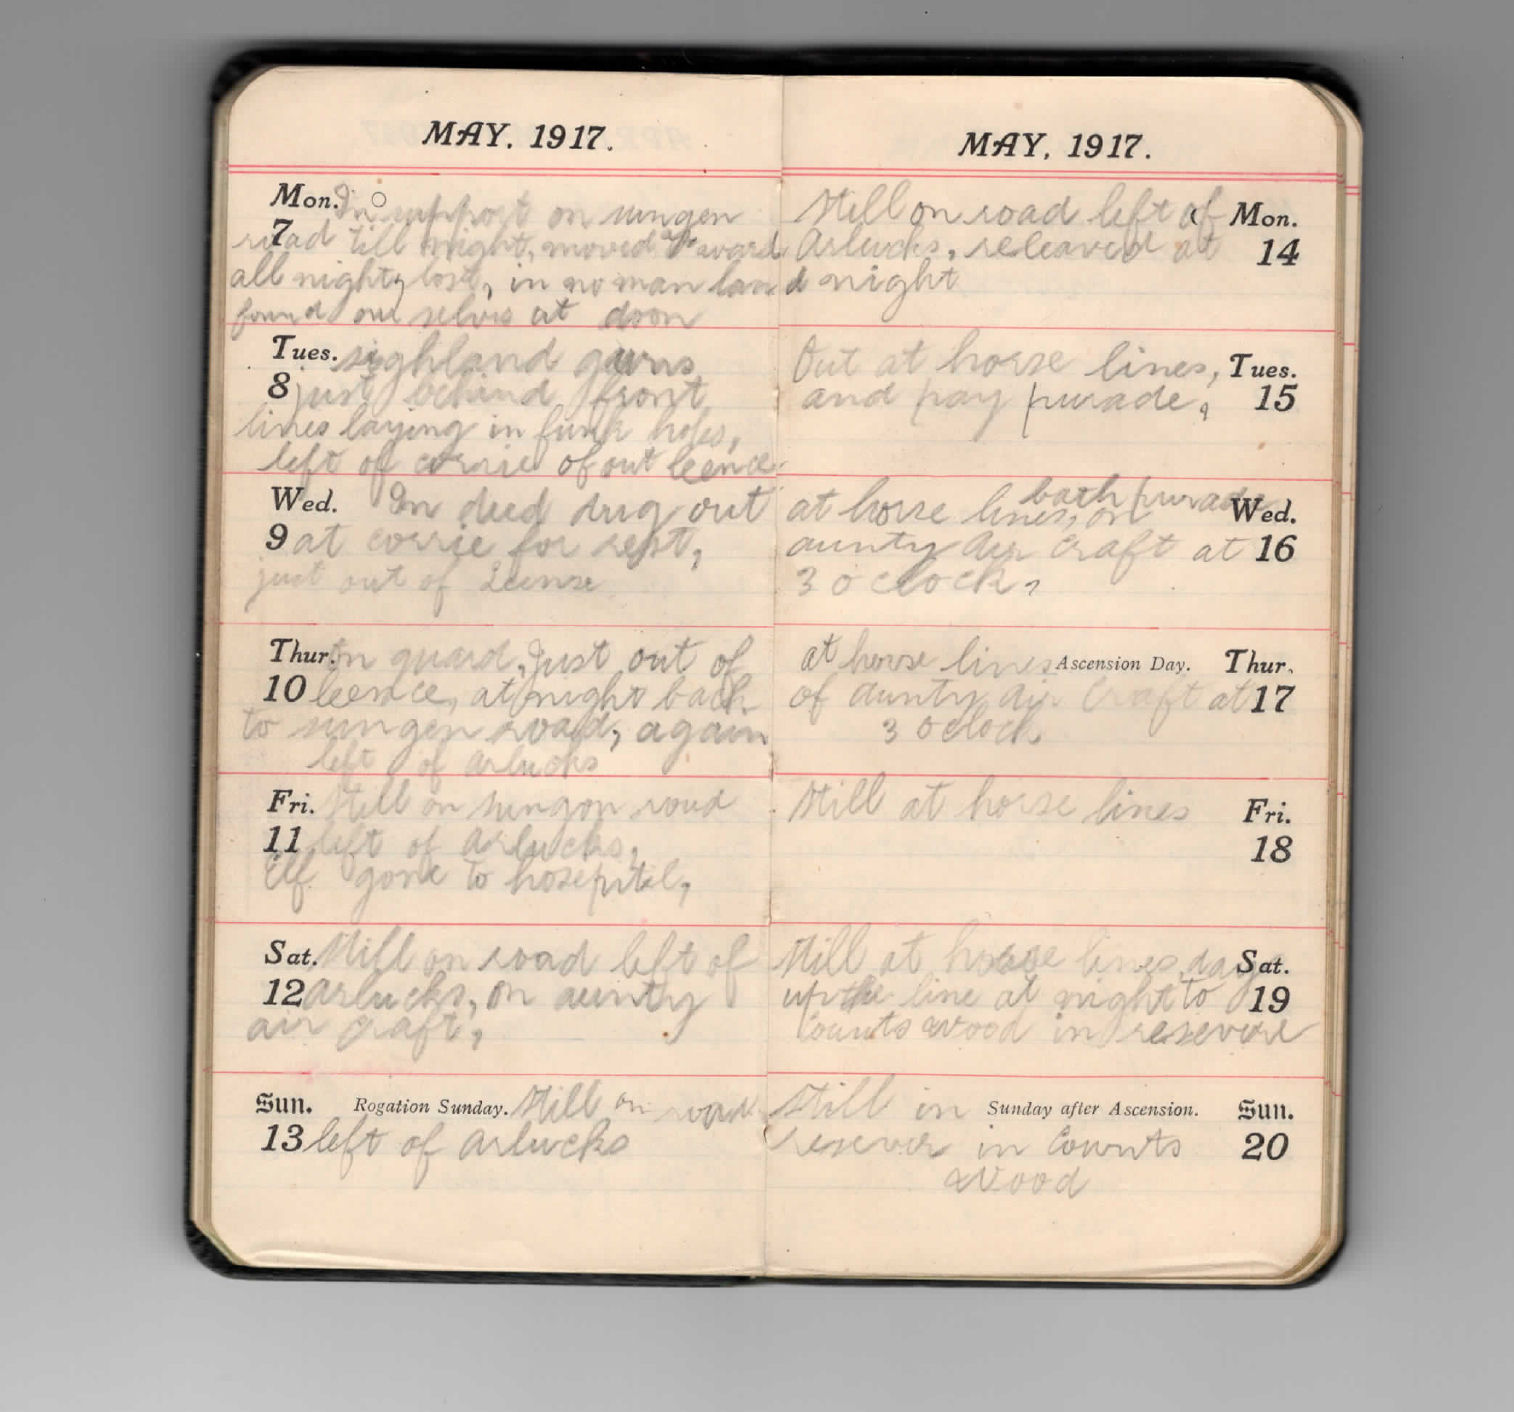 MAY. 1917.
Mon. In support on sungen
7 road till night, moved forward
all night, lost, in no man land
found our selvis at doon
Tues. sighland guns
8 just behind front
lines laying in funk holes,
left of corrie of out leence
Wed. In deed dug out
9 at corrie for rest,
just out of Leense
Thur. On guard, Just out of
10 leence, at night back
to sungen road, again
left of arlucks
Fri. Still on sungon road
11 left of arlucks,
Elf gone to hosepitel,
Sat. Still on road left of
12 arlucks, on aunty
air craft,
Sun. Rogation Sunday. Still on road
13 left of arlucks
MAY, 1917.
Still on road left of Mon.
Arlucks, releaved at 14
night
Out at horse lines, Tues.
and pay purade, 15
bath purade
at horse lines, on Wed.
aunty Air craft at 16
3 o clock,
at horse lines Ascension Day. Thur.
of aunty air craft at 17
3 oclock
Still at horse lines Fri.
18
Still at horse lines day Sat.
up the line at night to 19
Counts wood in resevere
Still in Sunday after Ascension. Sun.
resever in Counts 20
Wood